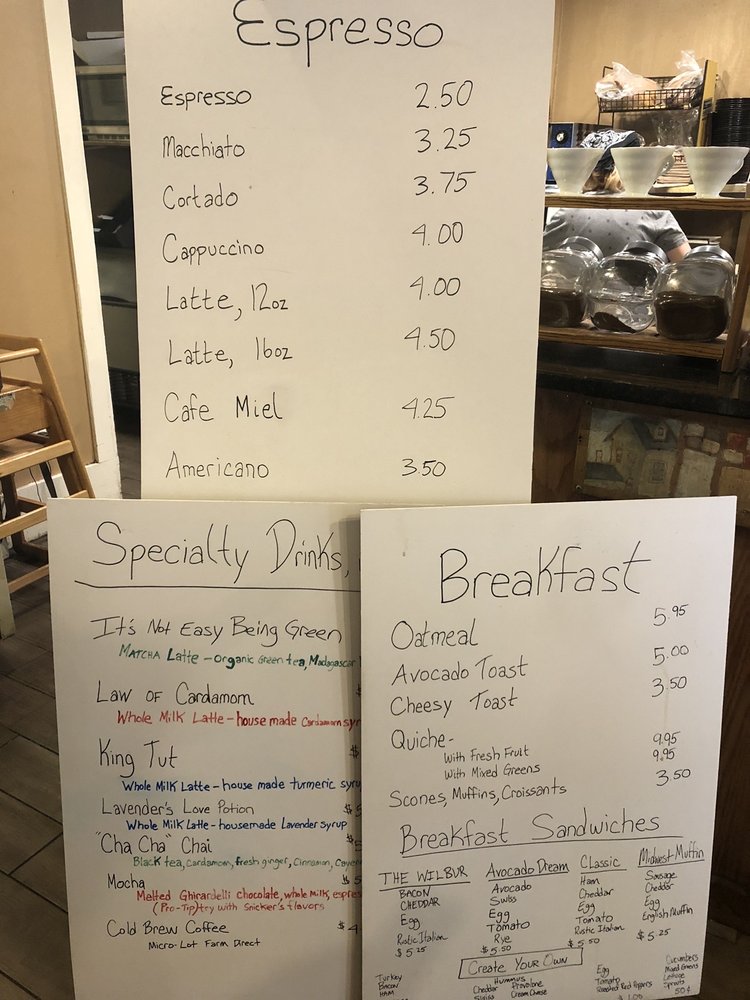 Espresso
Espresso 2.50
Macchiato 3.25
Cortado 3.75
Cappuccino 4.00
Latte, 12oz 4.00
Latte, 16oz 4.50
Cafe Miel 4.25
Americano 3.50
Specialty Drinks,
It's Not Easy Being Green
Matcha Latte - organic Green tea, Madagascar
Law of Cardamom
Whole Milk Latte - house made Cardamom syr
King Tut $
Whole Milk Latte - house made turmeric syru
Lavender's Love Potion $5
Whole Milk Latte - housemade Lavender syrup
"Cha Cha" Chai $5
Black tea, Cardamom, fresh ginger, Cinnamon, Cayen
Mocha $5
Melted Ghirardelli chocolate, whole milk, espres
(Pro-Tip) try with Snicker's flavors
Cold Brew Coffee $4
Micro-Lot Farm Direct
Breakfast
Oatmeal 5.95
Avocado Toast 5.00
Cheesy Toast 3.50
Quiche-
With Fresh Fruit 9.95
With Mixed Greens 9.95
Scones, Muffins, Croissants 3.50
Breakfast Sandwiches
THE WILBUR
BACON
CHEDDAR
Egg
Rustic Italian
$5.25
Avocado Dream
Avocado
Swiss
Egg
Tomato
Rye
$5.50
Classic
Ham
Cheddar
Egg
Tomato
Rustic Italian
$5.50
Midwest Muffin
Sausage
Cheddar
Egg
English Muffin
$5.25
Create Your Own
Turkey
Bacon
Ham
Hummus
Cheddar Provolone
Swiss Cream Cheese
Egg
Tomato
Roasted Red Peppers
1.00
Cucumbers
Mixed Greens
Lettuce
Sprouts
50¢